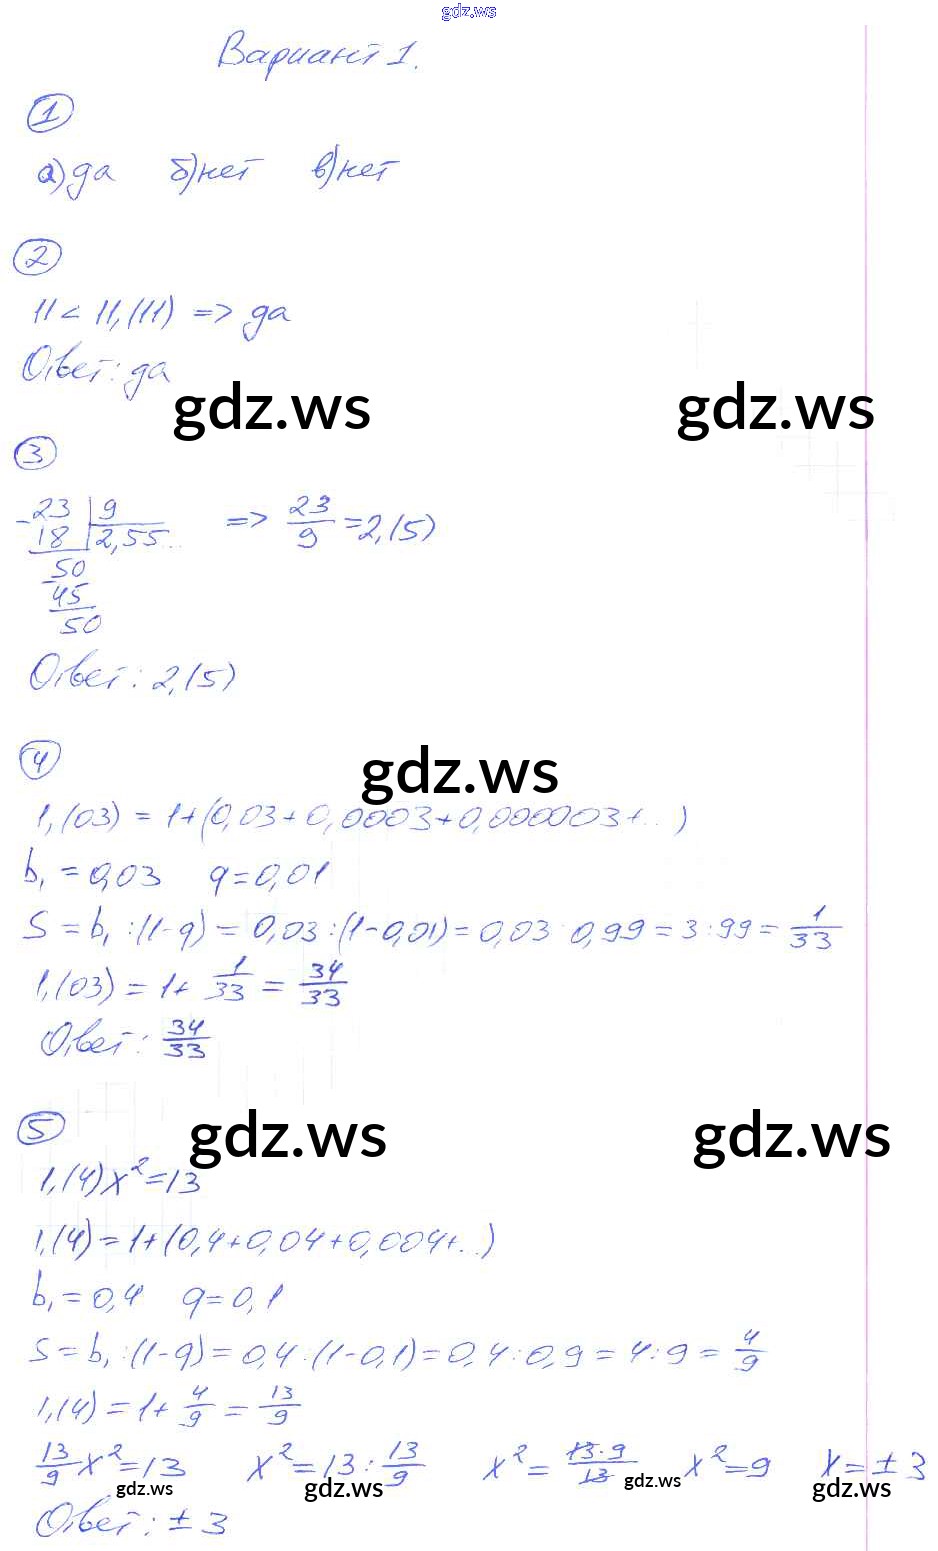 gdz.ws
Вариант 1.
1
а) да б) нет в) нет
2
11 < 11,(111) => да
Ответ: да
gdz.ws gdz.ws
3
23 | 9
- 18 | 2,55... => 23/9 = 2,(5)
50
- 45
50
Ответ: 2,(5)
4
gdz.ws
1,(03) = 1+(0,03+0,0003+0,000003+...)
b₁ = 0,03 q = 0,01
S = b₁ : (1-q) = 0,03 : (1-0,01) = 0,03 : 0,99 = 3 : 99 = 1/33
1,(03) = 1 + 1/33 = 34/33
Ответ: 34/33
5
gdz.ws gdz.ws
1,(4)x² = 13
1,(4) = 1+(0,4+0,04+0,004+...)
b₁ = 0,4 q = 0,1
S = b₁ : (1-q) = 0,4 : (1-0,1) = 0,4 : 0,9 = 4 : 9 = 4/9
1,(4) = 1 + 4/9 = 13/9
13/9 x² = 13 x² = 13 : 13/9 x² = 13·9/13 x² = 9 x = ±3
gdz.ws gdz.ws gdz.ws gdz.ws
Ответ: ±3